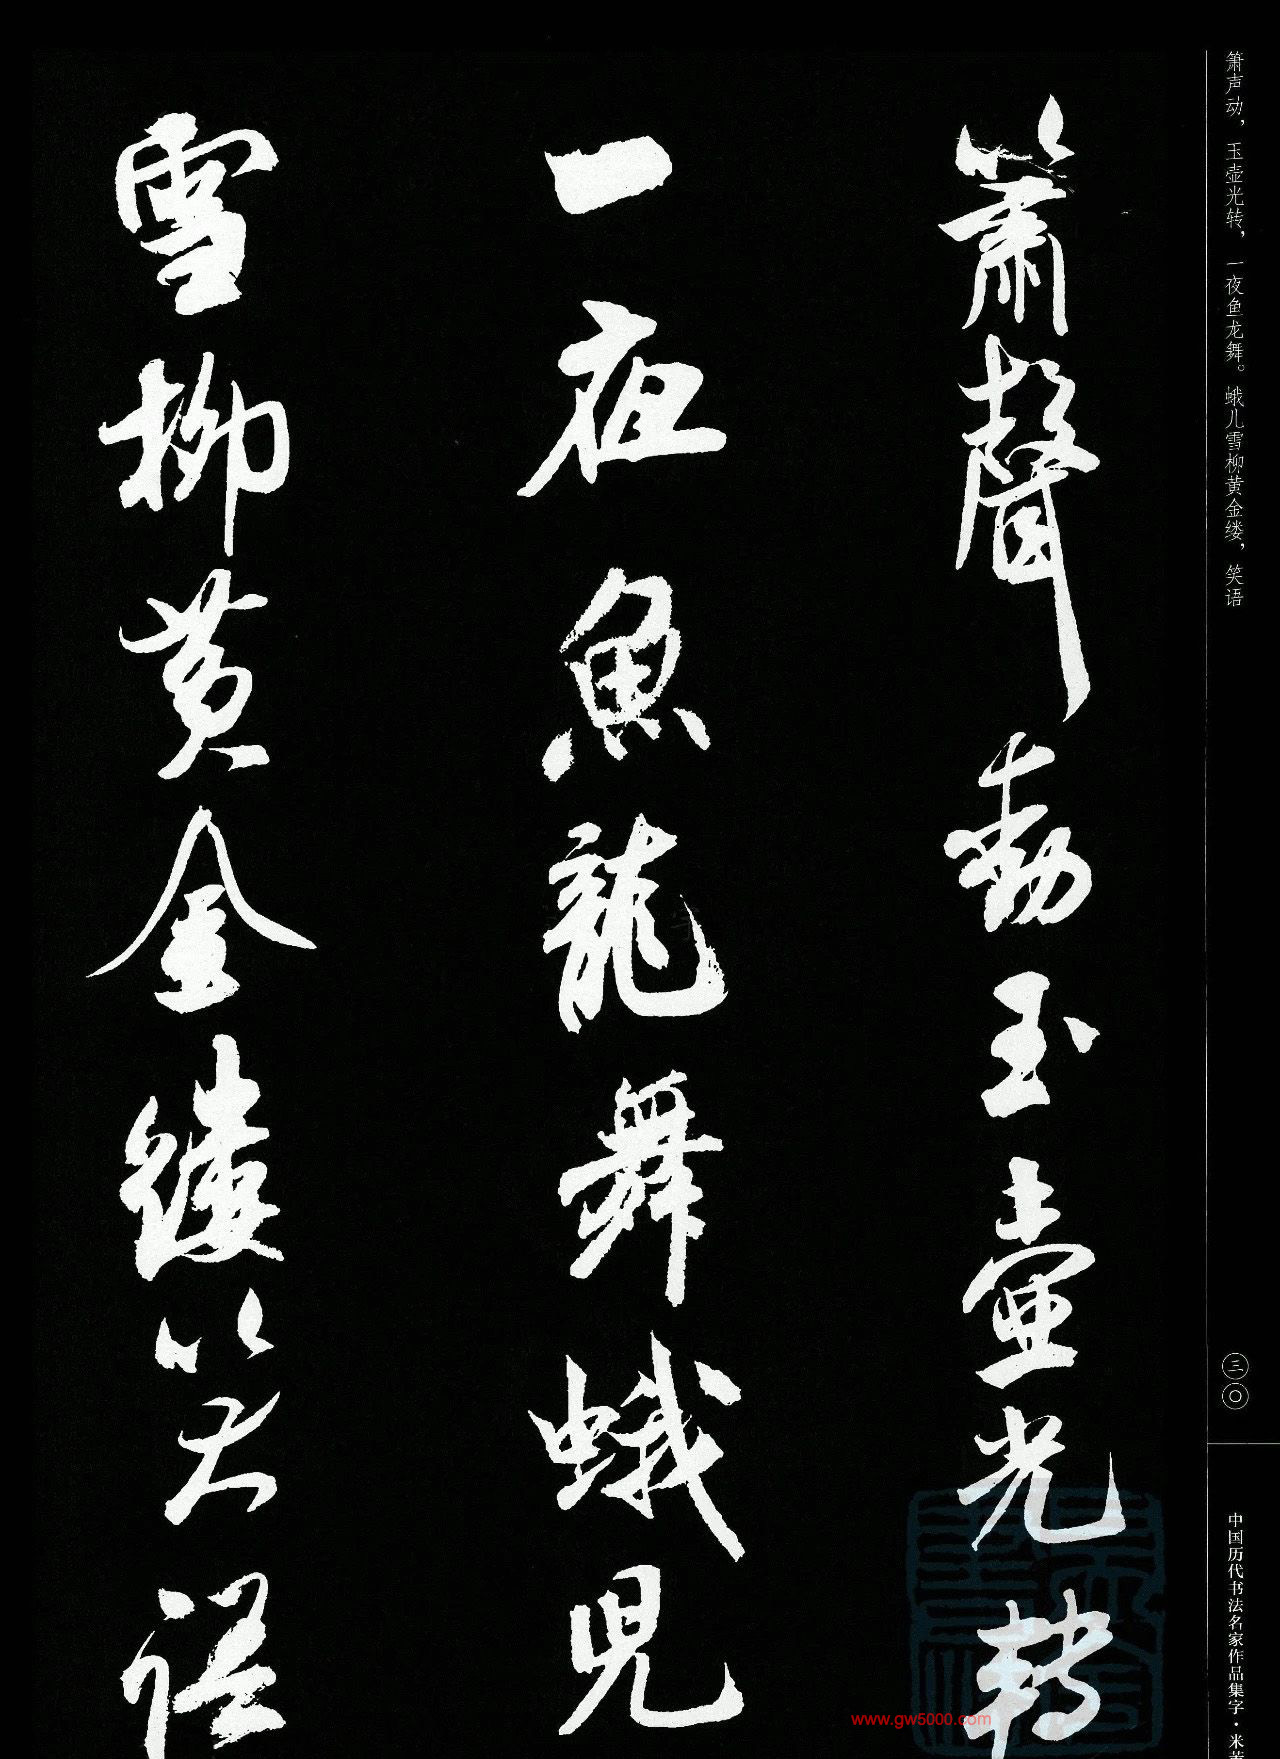 箫声动，玉壶光转，一夜鱼龙舞。蛾儿雪柳黄金缕，笑语
簫聲動玉壺光轉
一夜魚龍舞蛾兒
雪柳黄金縷笑語
三〇
中国历代书法名家作品集字·米芾
www.gw5000.com